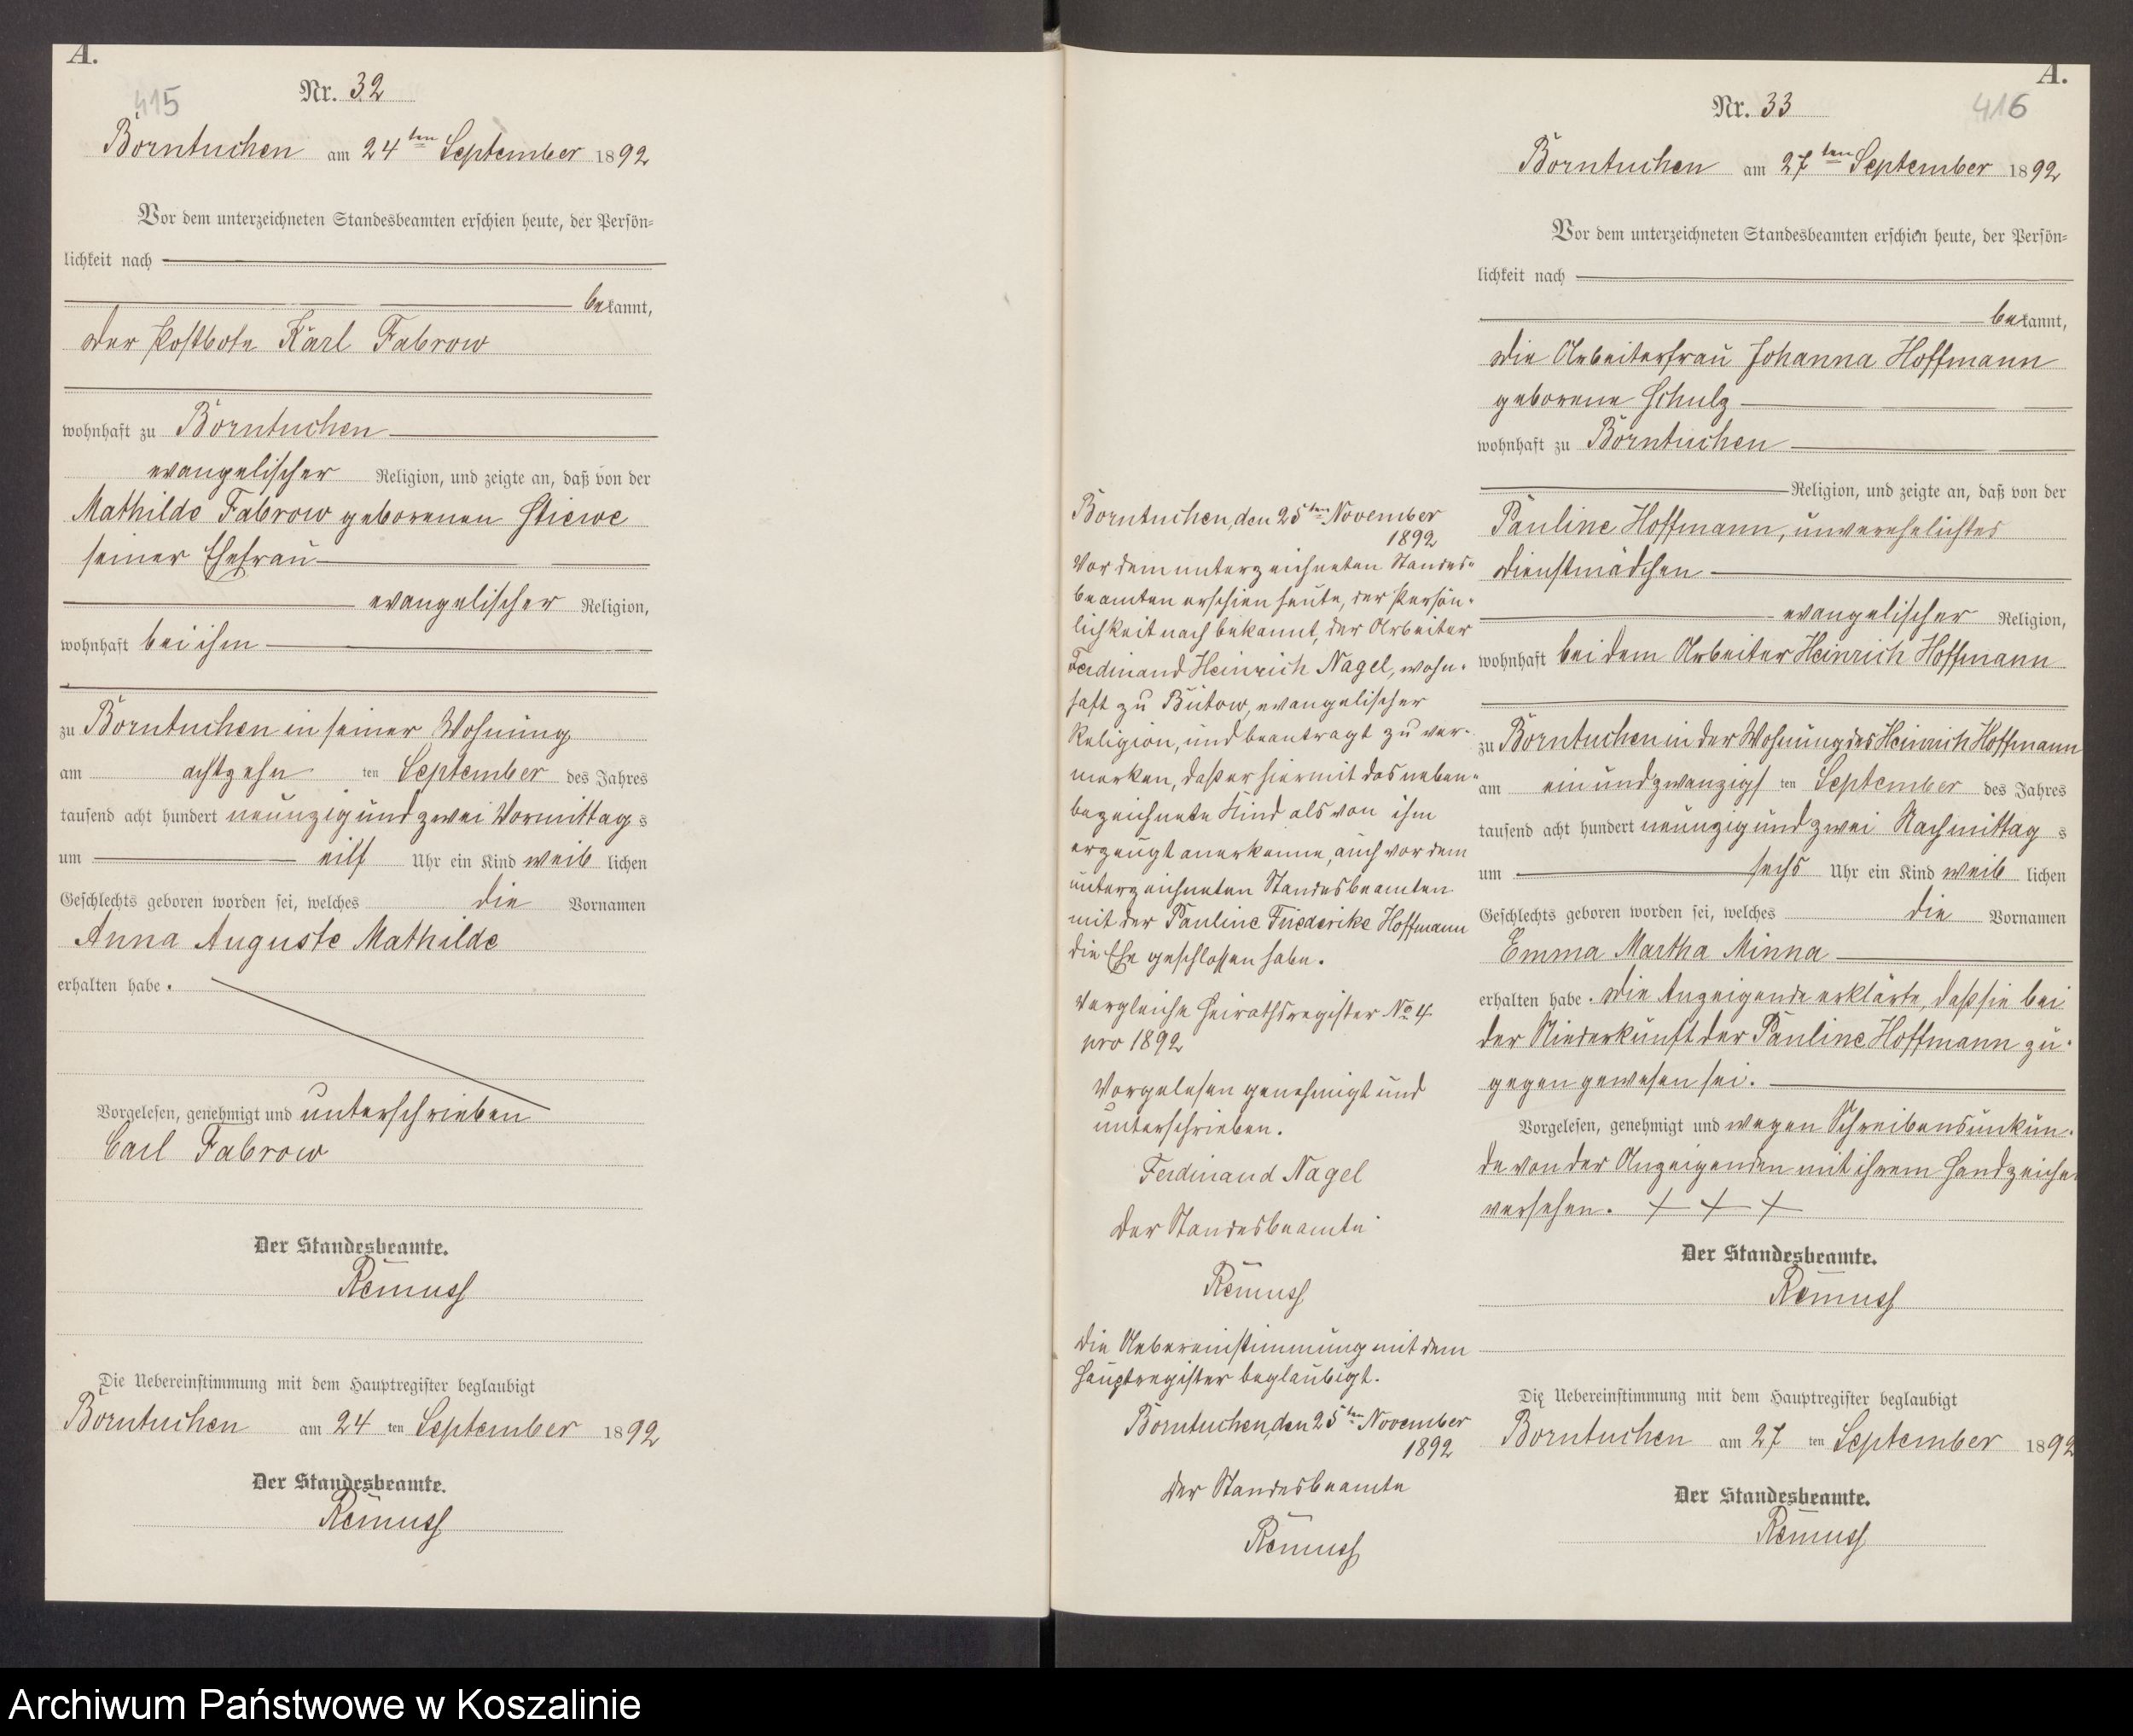 A.
415
Nr. 32
Borntuchen am 24ten September 1892
Vor dem unterzeichneten Standesbeamten erschien heute, der Persön-
lichkeit nach
bekannt,
der Postbote Karl Fabrow
wohnhaft zu Borntuchen
evangelischer Religion, und zeigte an, daß von der
Mathilde Fabrow geborenen Stiewe
seiner Ehefrau
evangelischer Religion,
wohnhaft bei ihm
zu Borntuchen in seiner Wohnung
am achtzehn ten September des Jahres
tausend acht hundert neunzig und zwei Vormittags
um eilf Uhr ein Kind weiblichen
Geschlechts geboren worden sei, welches die Vornamen
Anna Auguste Mathilde
erhalten habe.
Vorgelesen, genehmigt und unterschrieben
Carl Fabrow
Der Standesbeamte.
Remuss
Die Uebereinstimmung mit dem Hauptregister beglaubigt
Borntuchen am 24 ten September 1892
Der Standesbeamte.
Remuss
Borntuchen, den 25ten November
1892
Vor dem unterzeichneten Standes-
beamten erschien heute, der Persön-
lichkeit nach bekannt, der Arbeiter
Ferdinand Heinrich Nagel, wohn-
haft zu Bütow, evangelischer
Religion, und beantragt zu ver-
merken, daß er hiermit das neben-
bezeichnete Kind als von ihm
erzeugt anerkenne, auch vor dem
unterzeichneten Standesbeamten
mit der Pauline Friederike Hoffmann
die Ehe geschlossen habe.
Vergleiche Heirathsregister No 4
pro 1892
Vorgelesen genehmigt und
unterschrieben.
Ferdinand Nagel
Der Standesbeamte
Remuss
Die Uebereinstimmung mit dem
Hauptregister beglaubigt.
Borntuchen, den 25ten November
1892
Der Standesbeamte
Remuss
A.
416
Nr. 33
Borntuchen am 27ten September 1892
Vor dem unterzeichneten Standesbeamten erschien heute, der Persön-
lichkeit nach
bekannt,
die Arbeiterfrau Johanna Hoffmann
geborene Schulz
wohnhaft zu Borntuchen
Religion, und zeigte an, daß von der
Pauline Hoffmann, unverehelichtes
Dienstmädchen
evangelischer Religion,
wohnhaft bei dem Arbeiter Heinrich Hoffmann
zu Borntuchen in der Wohnung des Heinrich Hoffmann
am ein und zwanzigs ten September des Jahres
tausend acht hundert neunzig und zwei Nachmittags
um sechs Uhr ein Kind weiblichen
Geschlechts geboren worden sei, welches die Vornamen
Emma Martha Minna
erhalten habe. Die Anzeigende erklärte, daß sie bei
der Niederkunft der Pauline Hoffmann zu-
gegen gewesen sei.
Vorgelesen, genehmigt und wegen Schreibensunkun-
de von der Anzeigenden mit ihrem Handzeichen
versehen. + + +
Der Standesbeamte.
Remuss
Die Uebereinstimmung mit dem Hauptregister beglaubigt
Borntuchen am 27 ten September 1892
Der Standesbeamte.
Remuss
Archiwum Państwowe w Koszalinie